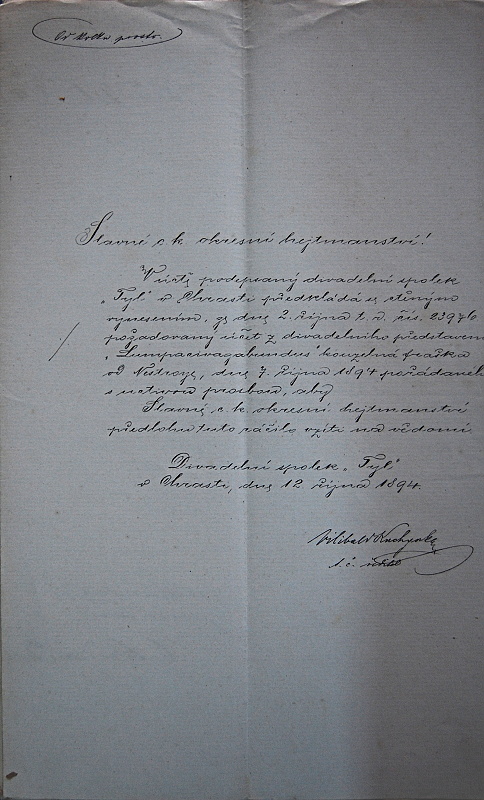 Od kolku prosto.
Slavné c. k. okresní hejtmanství!
V úctě podepsaný divadelní spolek
„Tyl" v Chrasti předkládá s ctěným
vynesením, ze dne 2. října t. r. čís. 23976
požadovaný účet z divadelního představení
„Lumpacivagabundus" kouzelná fraška
od Nestroye, dne 7. října 1894 pořádaného
s uctivou prosbou, aby
Slavné c. k. okresní hejtmanství
předlohu tuto ráčilo vzíti na vědomí.
Divadelní spolek „Tyl"
v Chrasti, dne 12. října 1894.
Vilibald